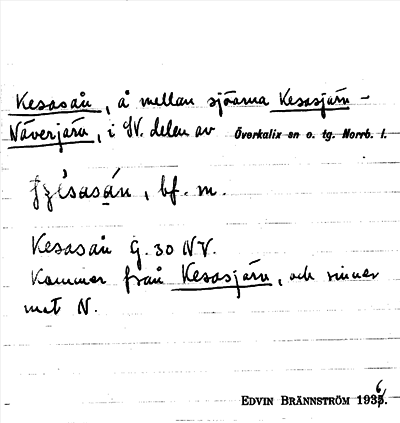 Kesasån, å mellan sjöarna Kesasjärn -
Näverjärn, i SV. delen av Överkalix sn o. tg. Norrb. l.
bf. m.
Kesasån G. 30 NV.
Kommer från Kesasjärn, och rinner
mot N.
EDVIN BRÄNNSTRÖM 1936.